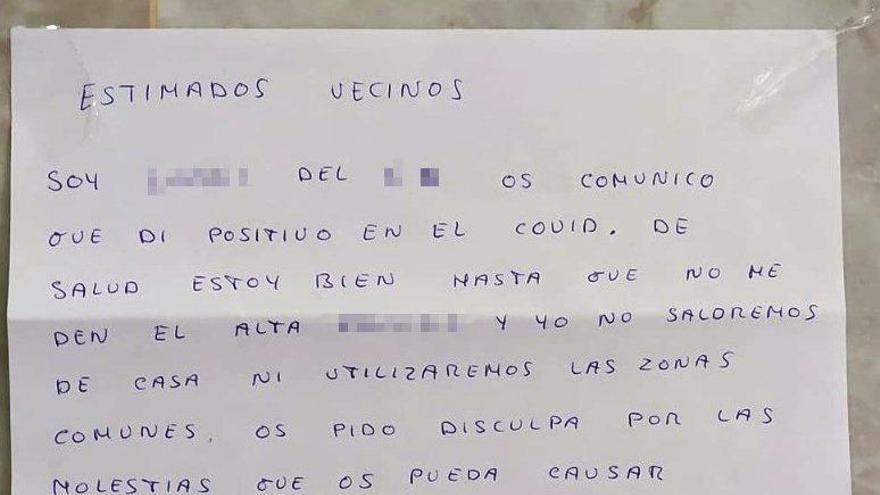 ESTIMADOS VECINOS
SOY DEL OS COMUNICO
QUE DI POSITIVO EN EL COVID. DE
SALUD ESTOY BIEN HASTA QUE NO ME
DEN EL ALTA Y YO NO SALDREMOS
DE CASA NI UTILIZAREMOS LAS ZONAS
COMUNES. OS PIDO DISCULPA POR LAS
MOLESTIAS QUE OS PUEDA CAUSAR